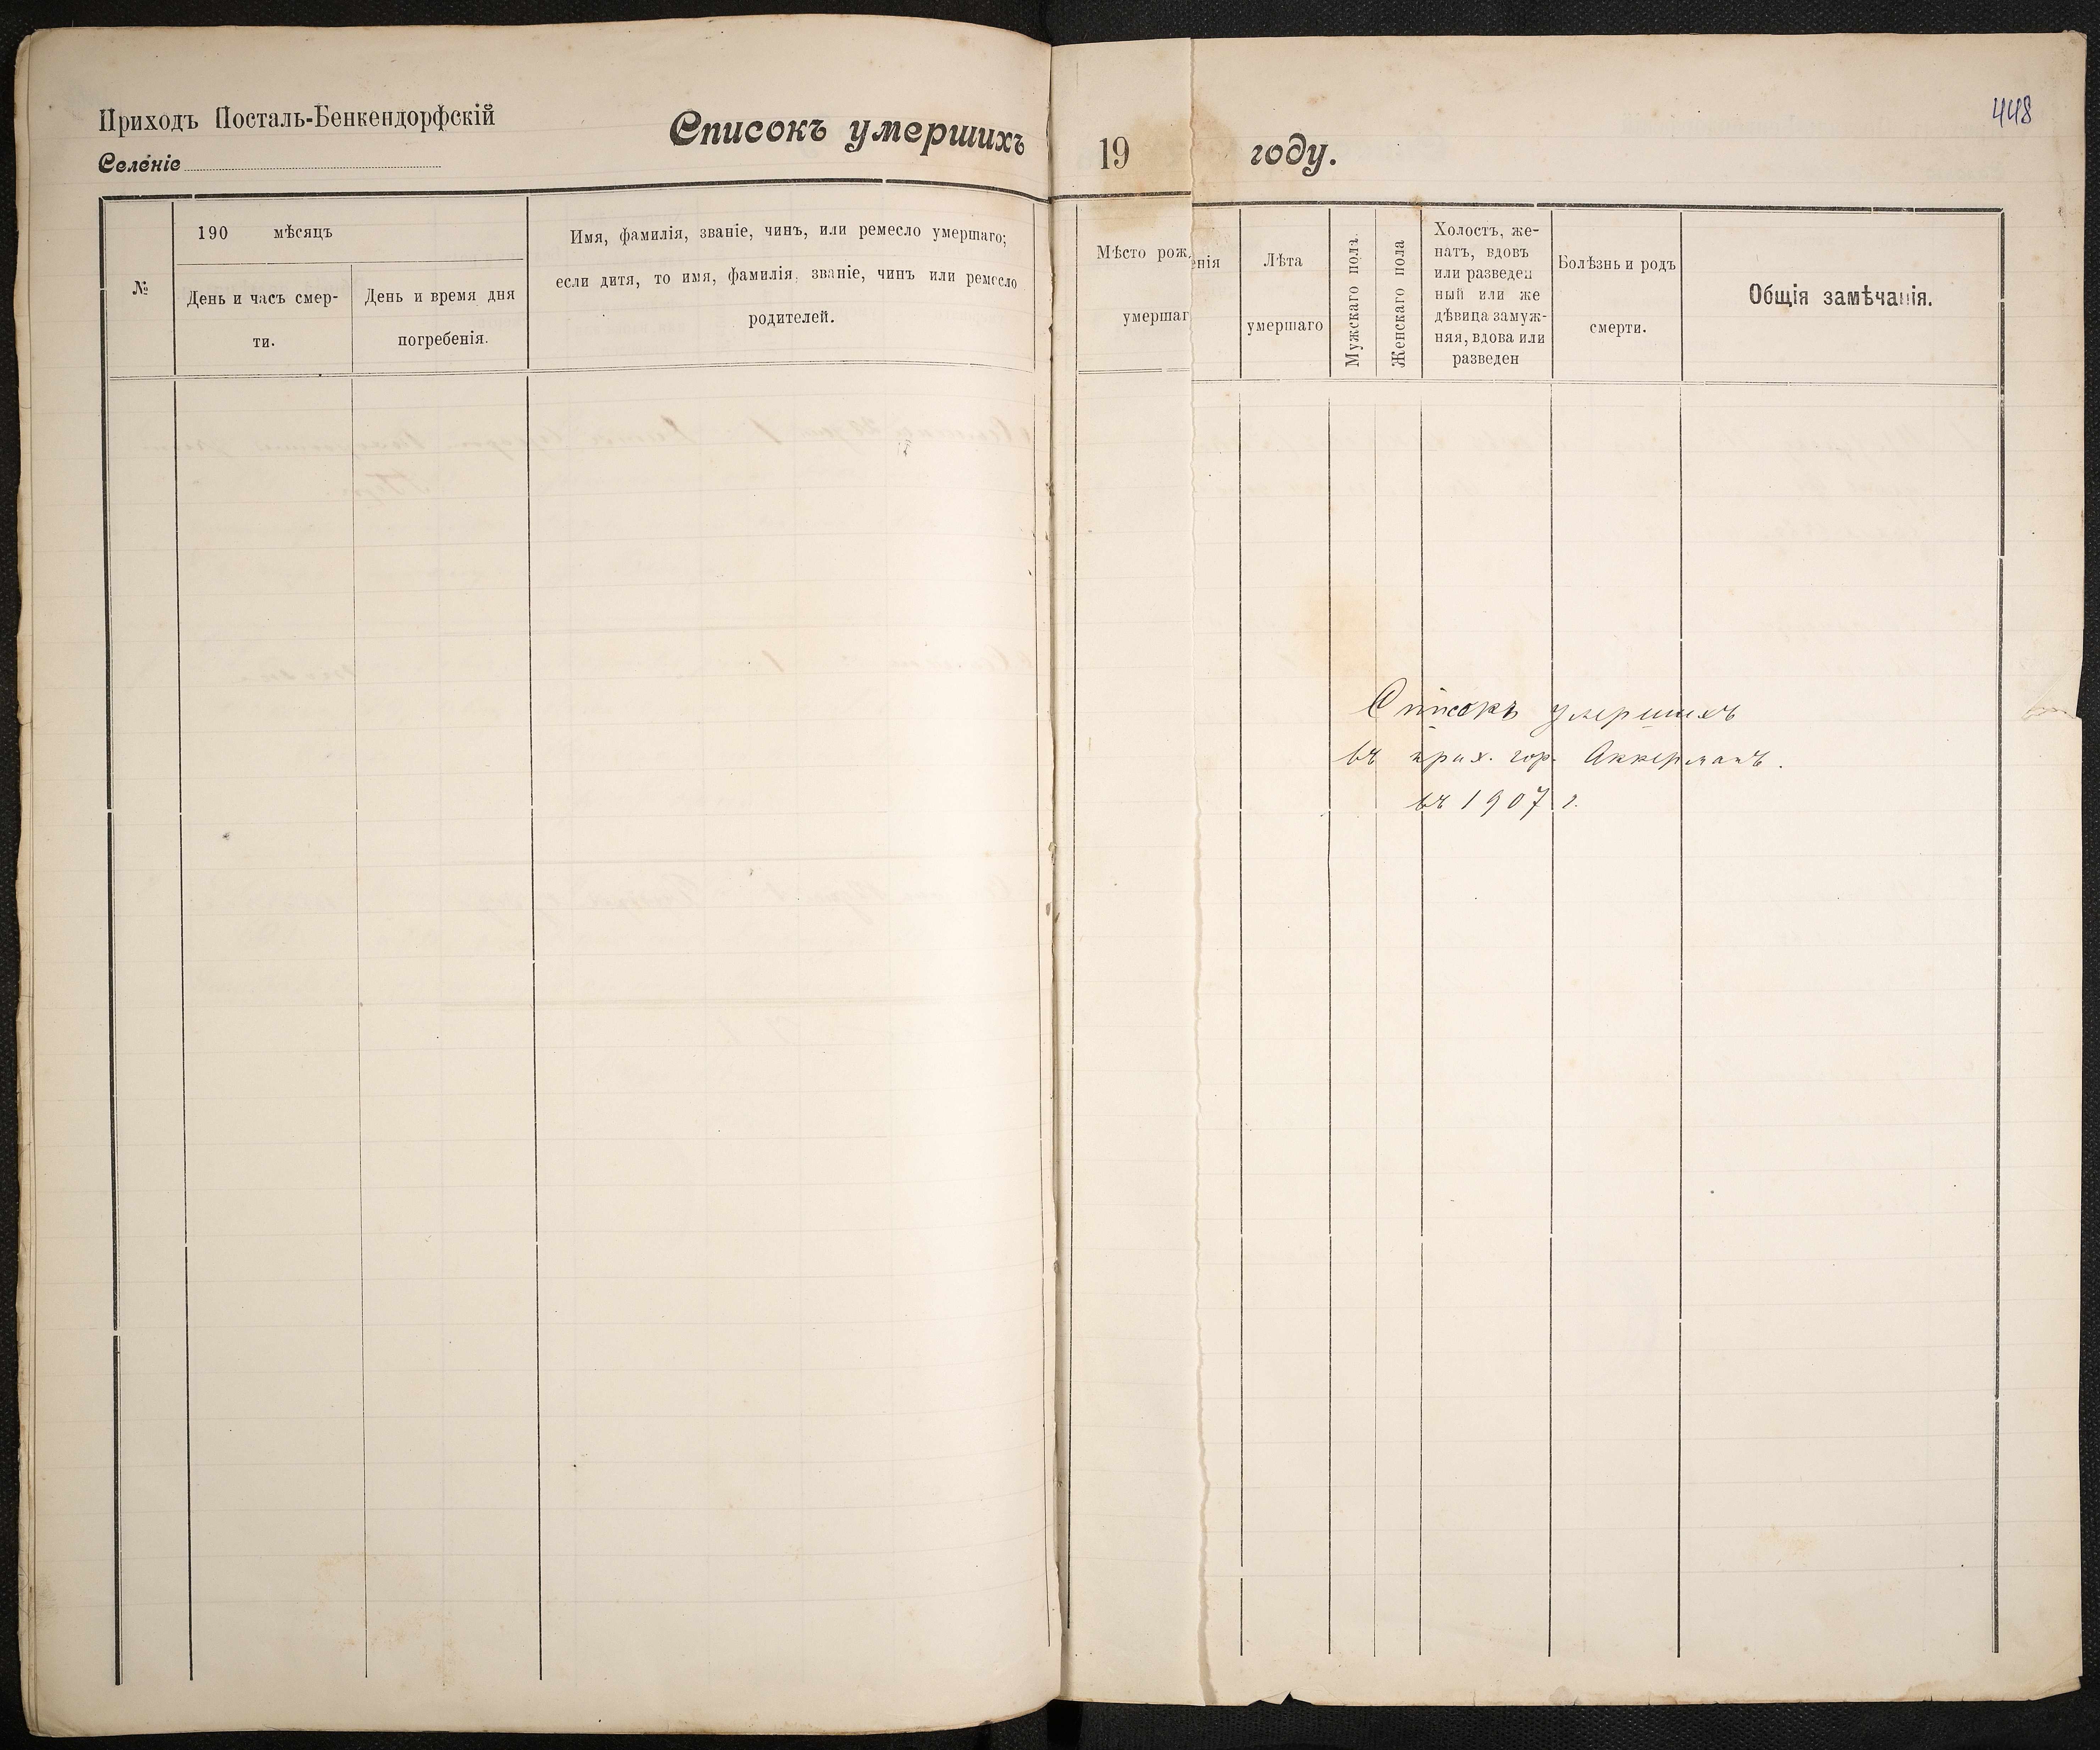 Приходъ Посталь-Бенкендорфскій
Селéніе
Списокъ умершихъ 19 году.
448
№
190 мѣсяцъ
День и часъ смер-
ти.
День и время дня
погребенія.
Имя, фамилія, званіе, чинъ, или ремесло умершаго;
если дитя, то имя, фамилія, званіе, чинъ или ремесло
родителей.
Мѣсто рож енія
умершаг
Лѣта
умершаго
Мужскаго пола.
Женскаго пола
Холостъ, же-
натъ, вдовъ
или разведен
ный или же
дѣвица замуж-
няя, вдова или
разведен
Болѣзнь и родъ
смерти.
Общія замѣчанія.
Списокъ умершихъ
въ прих. гор. Аккерманъ.
въ 1907 г.